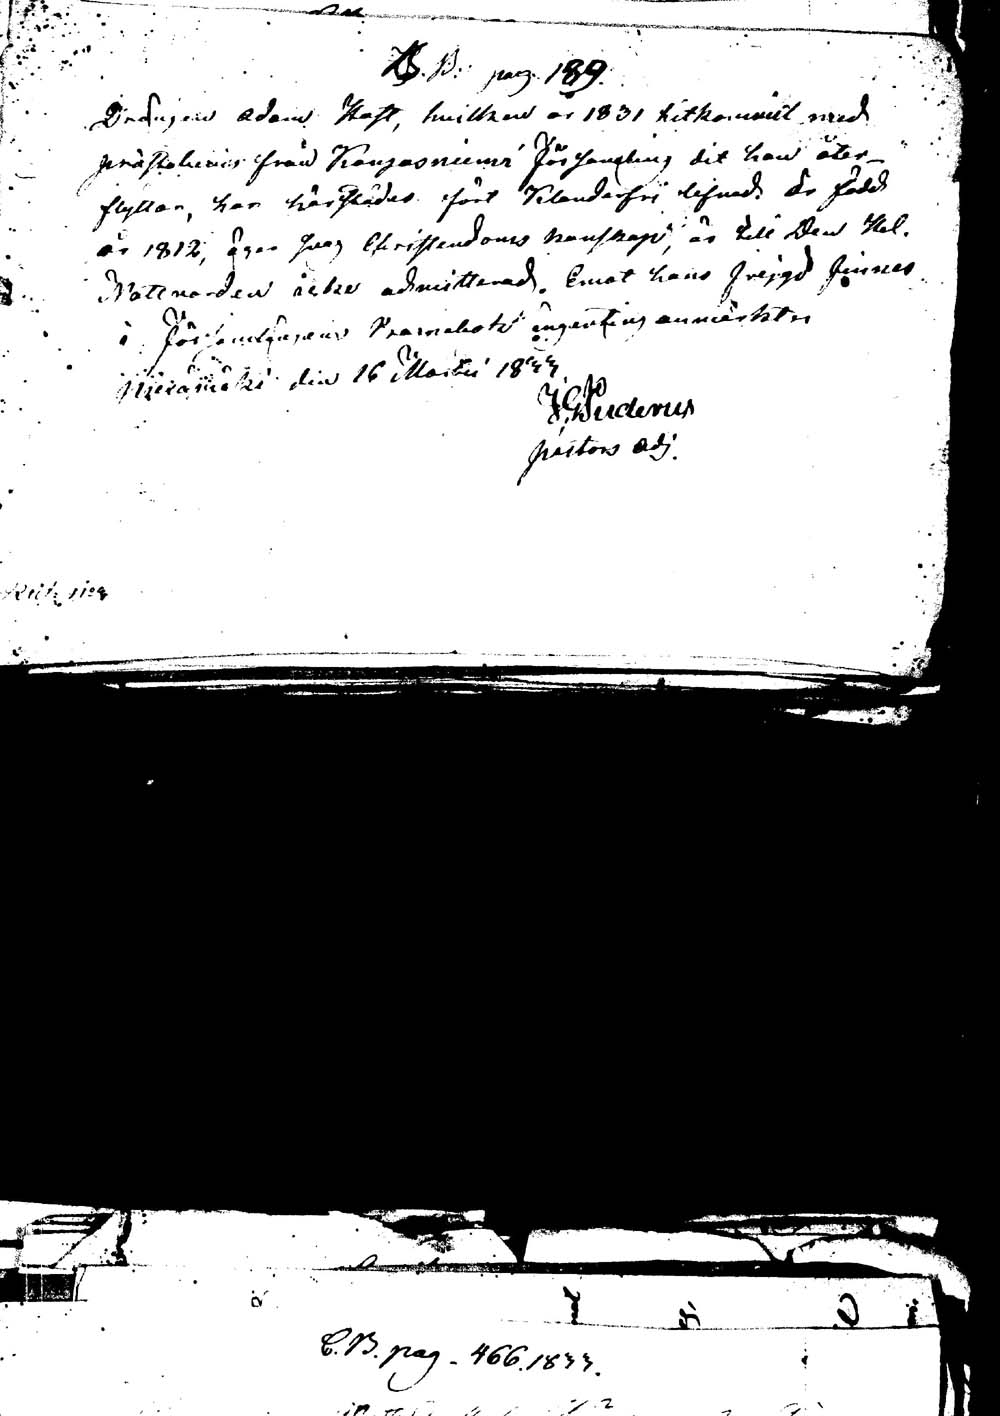 B. pag. 189.
Drängen Adam Haft, hvilken år 1831 hitkommit med
prästebevis från Kangasniemi Församling dit han åter-
flyttar, har härstädes fört klanderfri lefnad. Är född
år 1812, äger svag Christendoms kunskap, är till Den Hel.
Nattvarden icke admitterad. Emot hans frejgd finnes
i Församlingens ingenting anmärkt.
den 16 Martii 1833.
Puderus
pastors adj.
C. B. pag. 466. 1833.